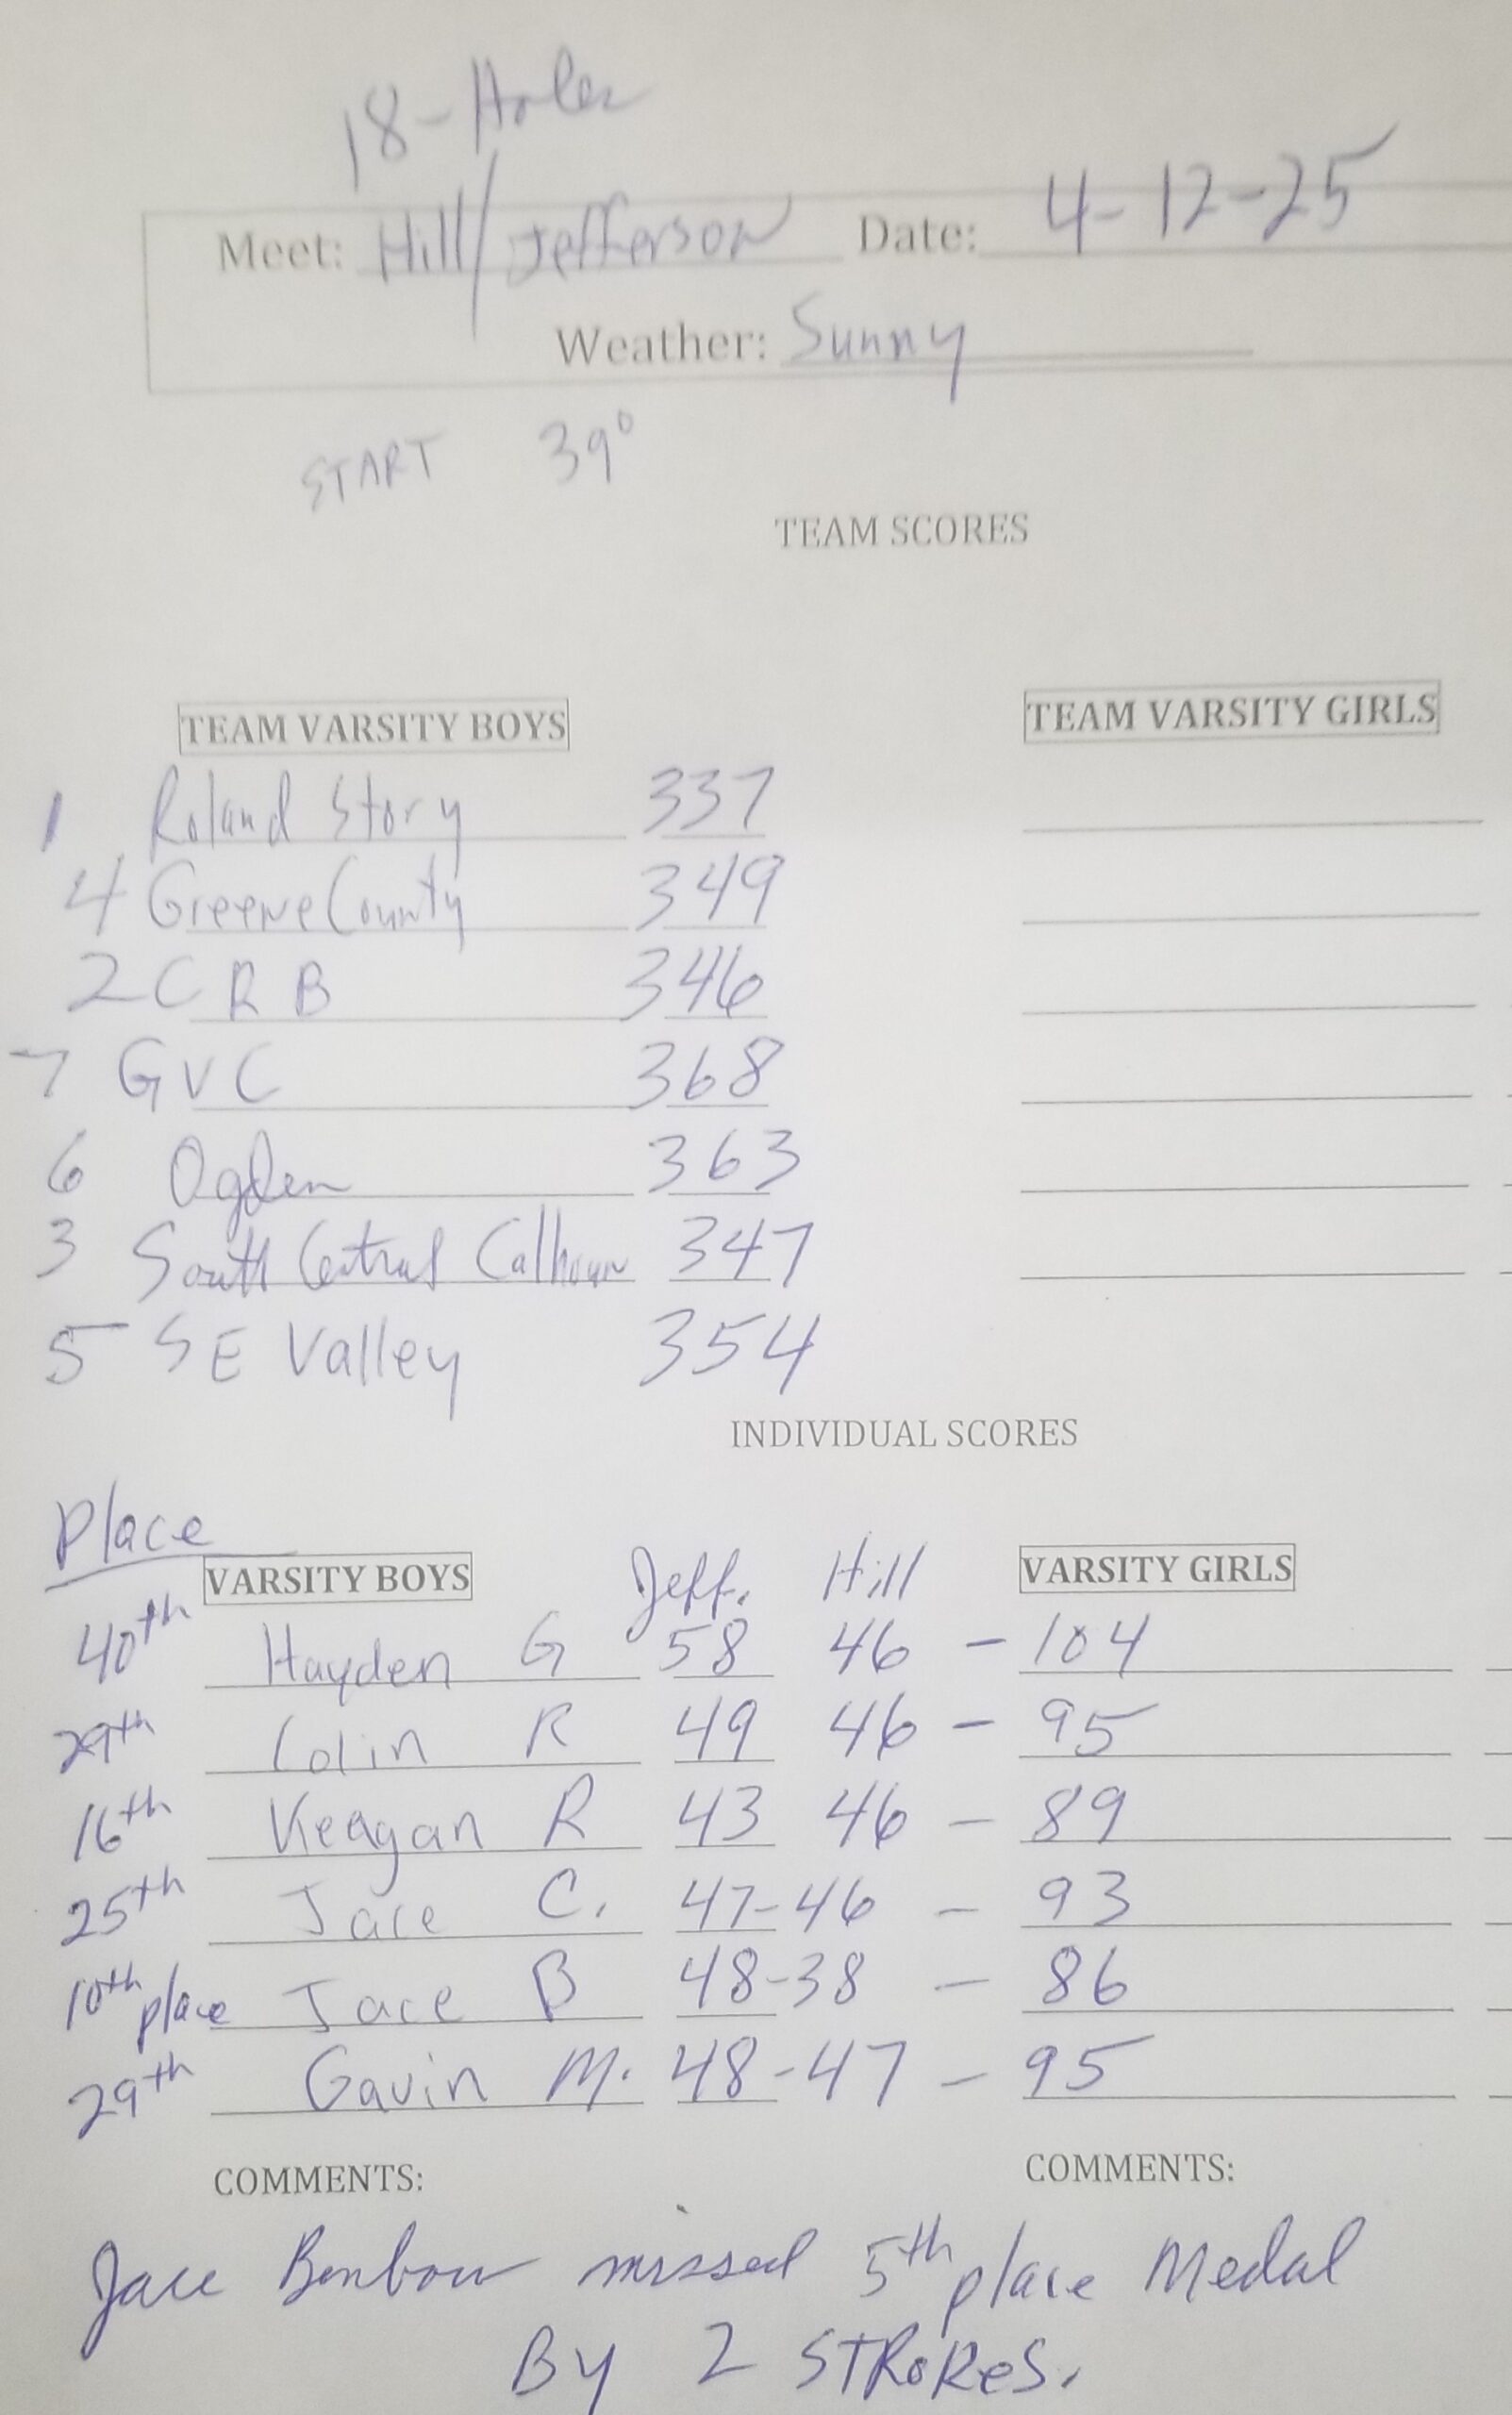 18-Holes
Meet: Hill/Jefferson Date: 4-12-25
Weather: Sunny
START 39°
TEAM SCORES
TEAM VARSITY BOYS TEAM VARSITY GIRLS
1 Roland Story 337
4 Greene County 349
2 C R B 346
7 G V C 368
6 Ogden 363
3 South Central Calhoun 347
5 SE Valley 354
INDIVIDUAL SCORES
Place
VARSITY BOYS Jeff. Hill VARSITY GIRLS
40th Hayden G 58 46 - 104
29th Colin R 49 46 - 95
16th Keagan R 43 46 - 89
25th Jace C. 47-46 - 93
10th place Jace B 48-38 - 86
29th Gavin M. 48-47 - 95
COMMENTS: COMMENTS:
Jace Benbow missed 5th place Medal
By 2 STRokes.